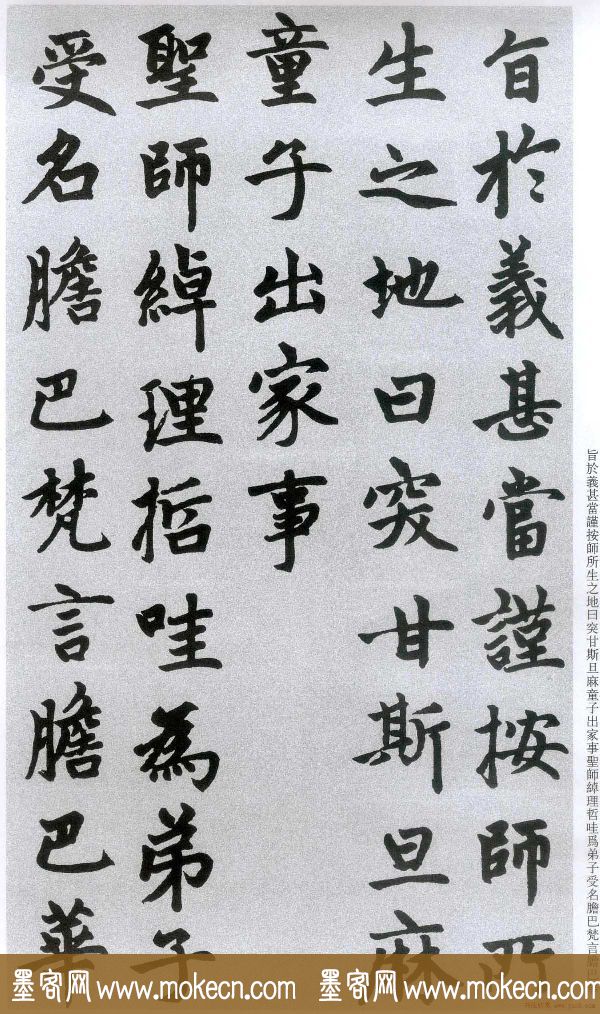 旨於義甚當謹按師所
生之地曰突甘斯旦麻
童子出家事
聖師綽理哲哇為弟子
受名膽巴梵言膽巴華
旨於義甚當謹按師所生之地曰突甘斯旦麻童子出家事聖師綽理哲哇爲弟子受名膽巴梵言膽巴
墨客网 www.mokecn.com 墨客网 www.mokecn.com